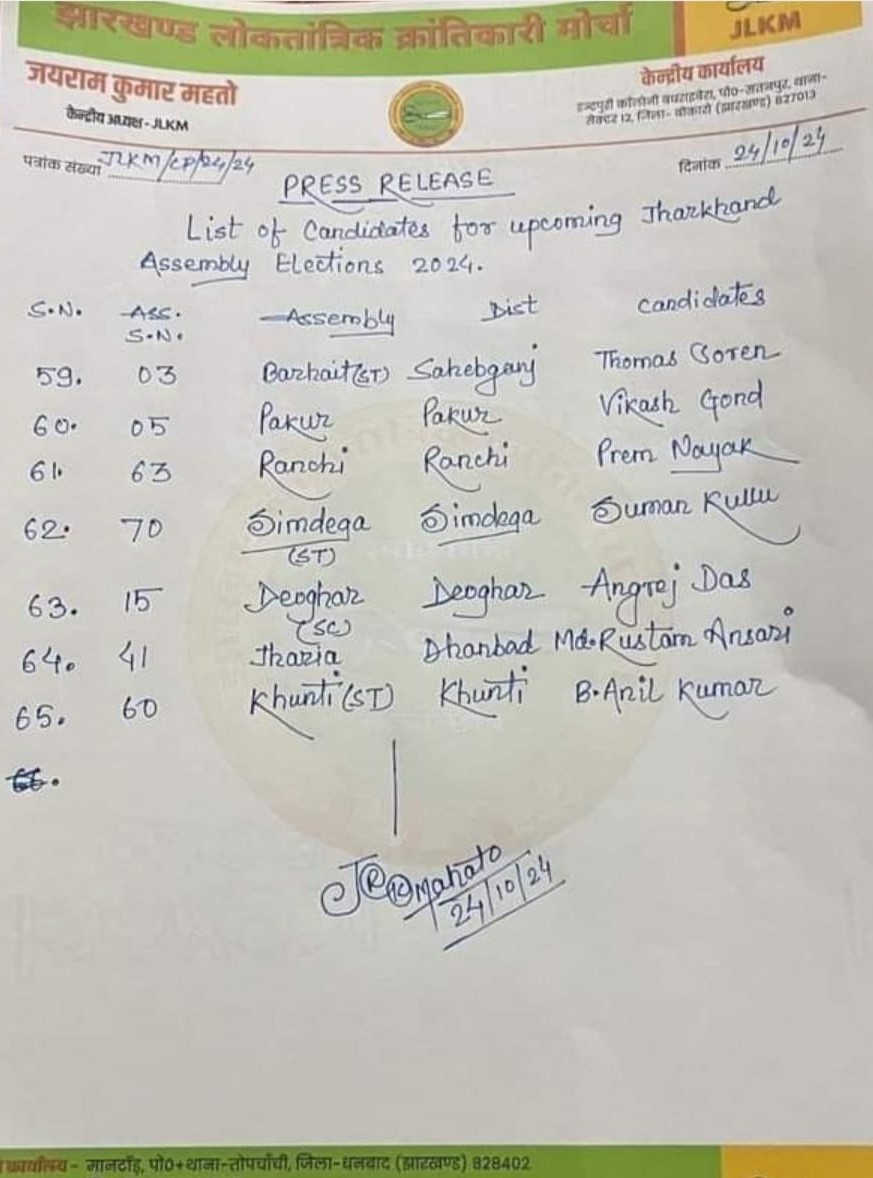 झारखण्ड लोकतांत्रिक क्रांतिकारी मोर्चा
JLKM
जयराम कुमार महतो
केन्द्रीय अध्यक्ष - JLKM
केन्द्रीय कार्यालय
इन्द्रपुरी कॉलोनी पो०-सतनपुर, थाना-
सेक्टर 12, जिला- बोकारो (झारखण्ड) 827013
पत्रांक संख्या JLKM/CP/24/24
दिनांक 24/10/24
PRESS RELEASE
List of Candidates for upcoming Jharkhand
Assembly Elections 2024.
S.N. Ass. S.N. Assembly Dist Candidates
59. 03 Barhait (ST) Sahebganj Thomas Soren
60. 05 Pakur Pakur Vikash Gond
61. 63 Ranchi Ranchi Prem Nayak
62. 70 Simdega (ST) Simdega Suman Kullu
63. 15 Deoghar (SC) Deoghar Angrej Das
64. 41 Jharia Dhanbad Md. Rustam Ansari
65. 60 Khunti (ST) Khunti B. Anil Kumar
66.
Mahato
24/10/24
कार्यालय - मानटाँड़, पो०+थाना-तोपचाँची, जिला-धनबाद (झारखण्ड) 828402